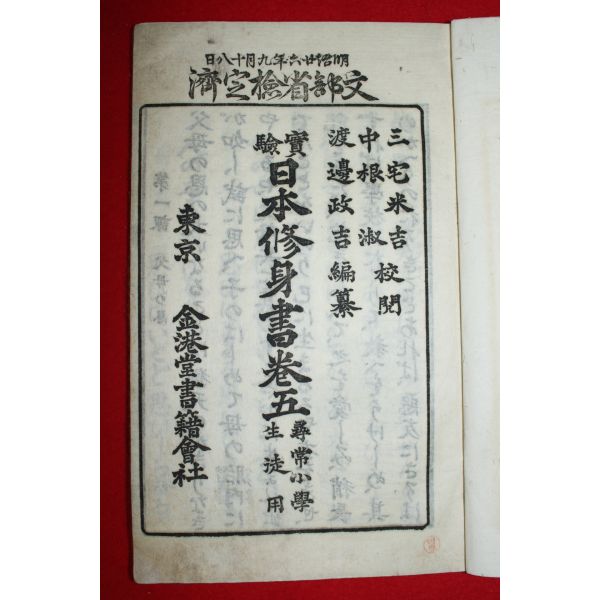 明治廿六年九月十八日
文部省檢定濟
三宅米吉
中根淑校閲
渡邊政吉編纂
實驗日本修身書卷五
尋常小學
生徒用
東京 金港堂書籍會社